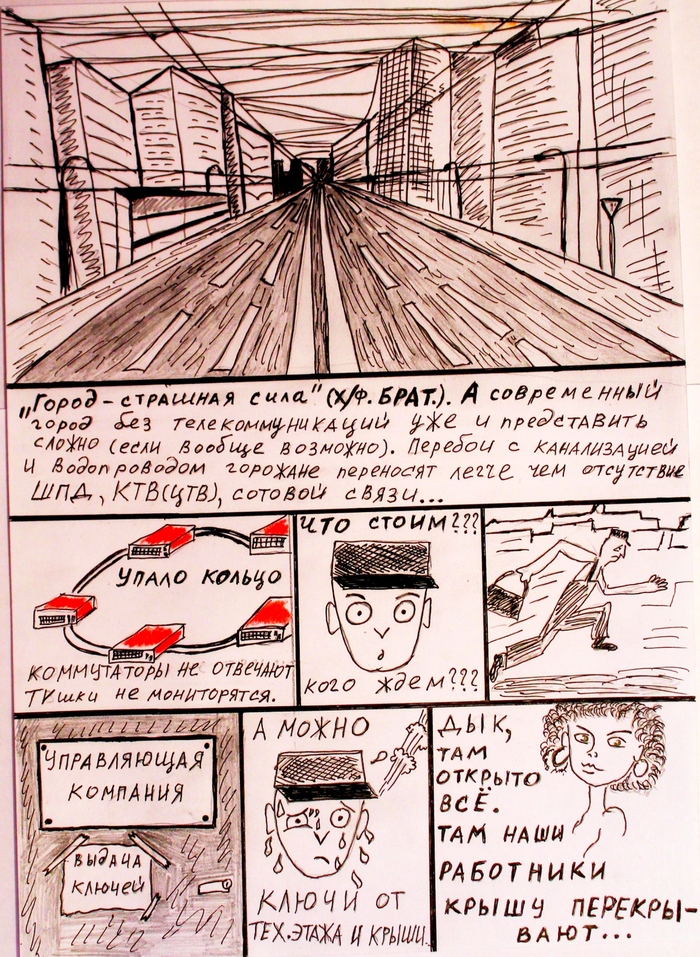 „Город-страшная сила" (х/ф. БРАТ.). А современный
город без телекоммуникаций уже и представить
сложно (если вообще возможно). Перебои с канализацией
и водопроводом горожане переносят легче чем отсутствие
ШПД, КТВ(ЦТВ), сотовой связи...
Упало кольцо
коммутаторы не отвечают
ТКшки не мониторятся.
Что стоим???
кого ждем???
Управляющая
компания
выдача
ключей
А можно
ключи от
тех.этажа и крыши..
Дык,
там
открыто
всё.
Там наши
работники
крышу перекры-
вают...